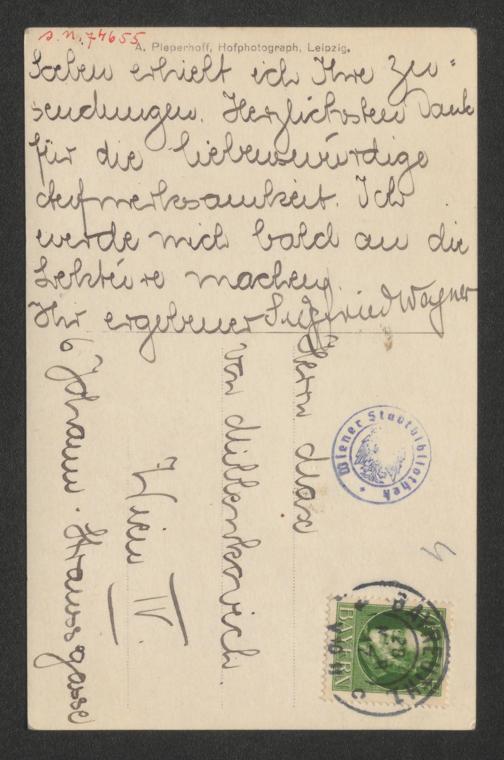 a. N. 74655
A. Pieperhoff, Hofphotograph, Leipzig.
Soeben erhielt ich Ihre Zu-
sendungen. Herzlichsten Dank
für die liebenswürdige
Aufmerksamkeit. Ich
werde mich bald an die
Lektüre machen.
Ihr ergebener Siegfried Wagner
Herrn Max
von Millenkovich
Wien IV.
6 Johann-Straussgasse
Wiener Stadtbibliothek
4
BAYERN
BAYREUTH